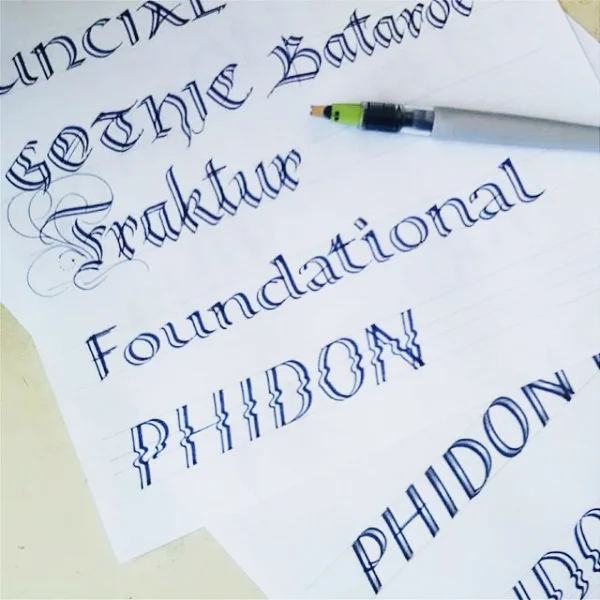 UNCIAL
GOTHIC Batarde
Fraktur
Foundational
PHIDON
PHIDON